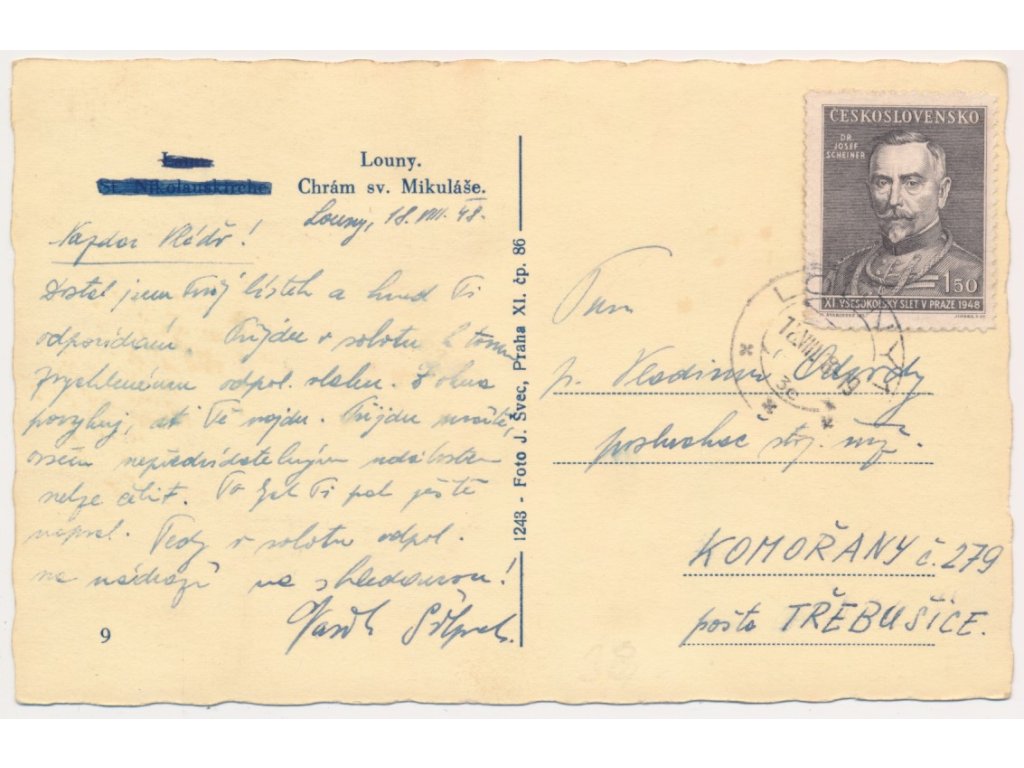 Louny.
St. Nikolauskirche
Chrám sv. Mikuláše.
Louny, 18. VIII. 48.
Nazdar Vláďo!
Dostal jsem Tvůj lístek a hned Ti
odpovídám. Přijdu v sobotu k tomu
zrychlenému odpol. vlaku. Z okna
pokřikuj, ať Tě najdu. Přijdu určitě,
ovšem nepředvídatelným událostem
nelze čelit. To bych Ti pak ještě
napsal. Tedy v sobotu odpol.
na nádraží na shledanou!
9
1243 - Foto J. Švec, Praha XI. čp. 86
ČESKOSLOVENSKO
DR.
JOSEF
SCHEINER
1.50
XI. VŠESOKOLSKÝ SLET V PRAZE 1948
LOUNY 1
VIII. 48 19
3c
Pan
p. Vladimír
posluchač stroj. inž.
KOMOŘANY č. 279
pošta TŘEBUŠICE.